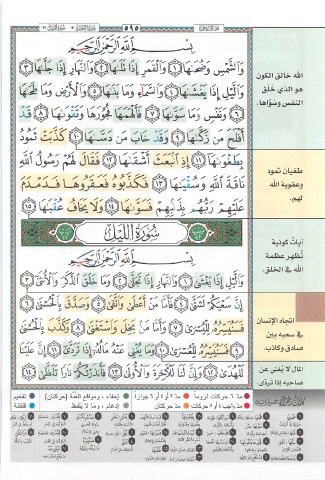 ٥٩٥
بِسْمِ اللَّهِ الرَّحْمَٰنِ الرَّحِيمِ
وَالشَّمْسِ وَضُحَاهَا ١ وَالْقَمَرِ إِذَا تَلَاهَا ٢ وَالنَّهَارِ إِذَا جَلَّاهَا ٣
وَاللَّيْلِ إِذَا يَغْشَاهَا ٤ وَالسَّمَاءِ وَمَا بَنَاهَا ٥ وَالْأَرْضِ وَمَا طَحَاهَا
٦ وَنَفْسٍ وَمَا سَوَّاهَا ٧ فَأَلْهَمَهَا فُجُورَهَا وَتَقْوَاهَا ٨ قَدْ
أَفْلَحَ مَن زَكَّاهَا ٩ وَقَدْ خَابَ مَن دَسَّاهَا ١٠ كَذَّبَتْ ثَمُودُ
بِطَغْوَاهَا ١١ إِذِ انبَعَثَ أَشْقَاهَا ١٢ فَقَالَ لَهُمْ رَسُولُ اللَّهِ
نَاقَةَ اللَّهِ وَسُقْيَاهَا ١٣ فَكَذَّبُوهُ فَعَقَرُوهَا فَدَمْدَمَ
عَلَيْهِمْ رَبُّهُم بِذَنبِهِمْ فَسَوَّاهَا ١٤ وَلَا يَخَافُ عُقْبَاهَا ١٥
سُورَةُ اللَّيْلِ
بِسْمِ اللَّهِ الرَّحْمَٰنِ الرَّحِيمِ
وَاللَّيْلِ إِذَا يَغْشَىٰ ١ وَالنَّهَارِ إِذَا تَجَلَّىٰ ٢ وَمَا خَلَقَ الذَّكَرَ وَالْأُنثَىٰ ٣
إِنَّ سَعْيَكُمْ لَشَتَّىٰ ٤ فَأَمَّا مَنْ أَعْطَىٰ وَاتَّقَىٰ ٥ وَصَدَّقَ بِالْحُسْنَىٰ ٦
فَسَنُيَسِّرُهُ لِلْيُسْرَىٰ ٧ وَأَمَّا مَن بَخِلَ وَاسْتَغْنَىٰ ٨ وَكَذَّبَ بِالْحُسْنَىٰ
٩ فَسَنُيَسِّرُهُ لِلْعُسْرَىٰ ١٠ وَمَا يُغْنِي عَنْهُ مَالُهُ إِذَا تَرَدَّىٰ ١١ إِنَّ عَلَيْنَا
لَلْهُدَىٰ ١٢ وَإِنَّ لَنَا لَلْآخِرَةَ وَالْأُولَىٰ ١٣ فَأَنذَرْتُكُمْ نَارًا تَلَظَّىٰ ١٤
الله خالق الكون
هو الذي خلق
النفس وسوّاها.
طغيان ثمود
وعقوبة الله
لهم.
آياتٌ كونية
تُظهر عظمة
الله في الخلق.
اتجاه الإنسان
في سعيه بين
صادق وكاذب.
المال لا يُغني عن
صاحبه إذا تردّى.
مدّ ٦ حركات لزوماً
مدّ ٢ أو ٤ أو ٦ جوازاً
إخفاء، ومواقع الغُنَّة (حركتان)
تفخيم
مدّ واجب ٤ أو ٥ حركات
مدّ حركتان
إدغام، وما لا يُلفظ
قلقلة